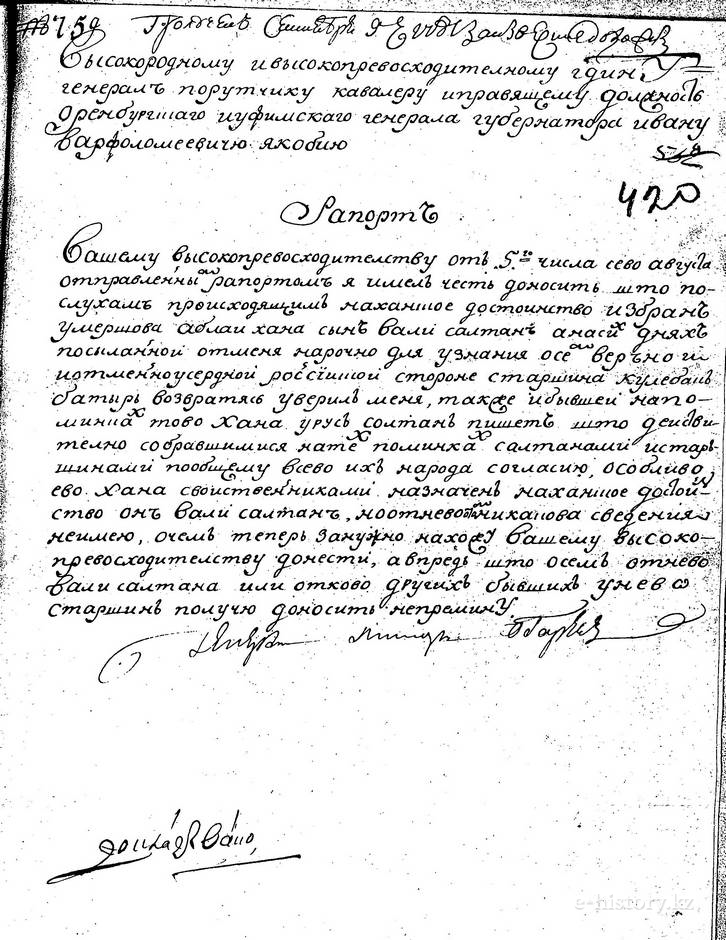 № 759
Высокородному ивысокопревосходителному гдину
генералъ порутчику кавалеру иправящему должность
оренбургшаго иуфимскаго генерала губернатора ивану
варфоломеевичю якобию
420
Рапортъ
Вашему высокопревосходительству отъ 5го числа сево августа
отправленны рапортомъ я имелъ честь доносить што по-
слухамъ происходящимъ наханшое достоинство избранъ
умершова аблаи хана сынъ вали салтанъ анасих дняхъ
посыланной отменя нарочно для узнания осем верьно и
иотменноусердной росѣииской стороне старшина кулебакъ
батырь возвратясь уверилъ меня, также ибывшей напо-
минках тово хана урусъ солтанъ пишетъ што деистви-
телно собравшимися натех поминках салтанами истар-
шинами пообщему всево ихъ народа согласию, особливо
ево хана своиственниками назначенъ наханшое достои-
ство онъ вали салтанъ, ноотнево никакова сведения
неимею, очемъ теперь занужно нахожу вашему высоко-
превосходительству донести, авпредь што осемъ отнево
вали салтана или отково другихъ бывшихъ унево
старшинъ получю доносить непремину
e-history.kz